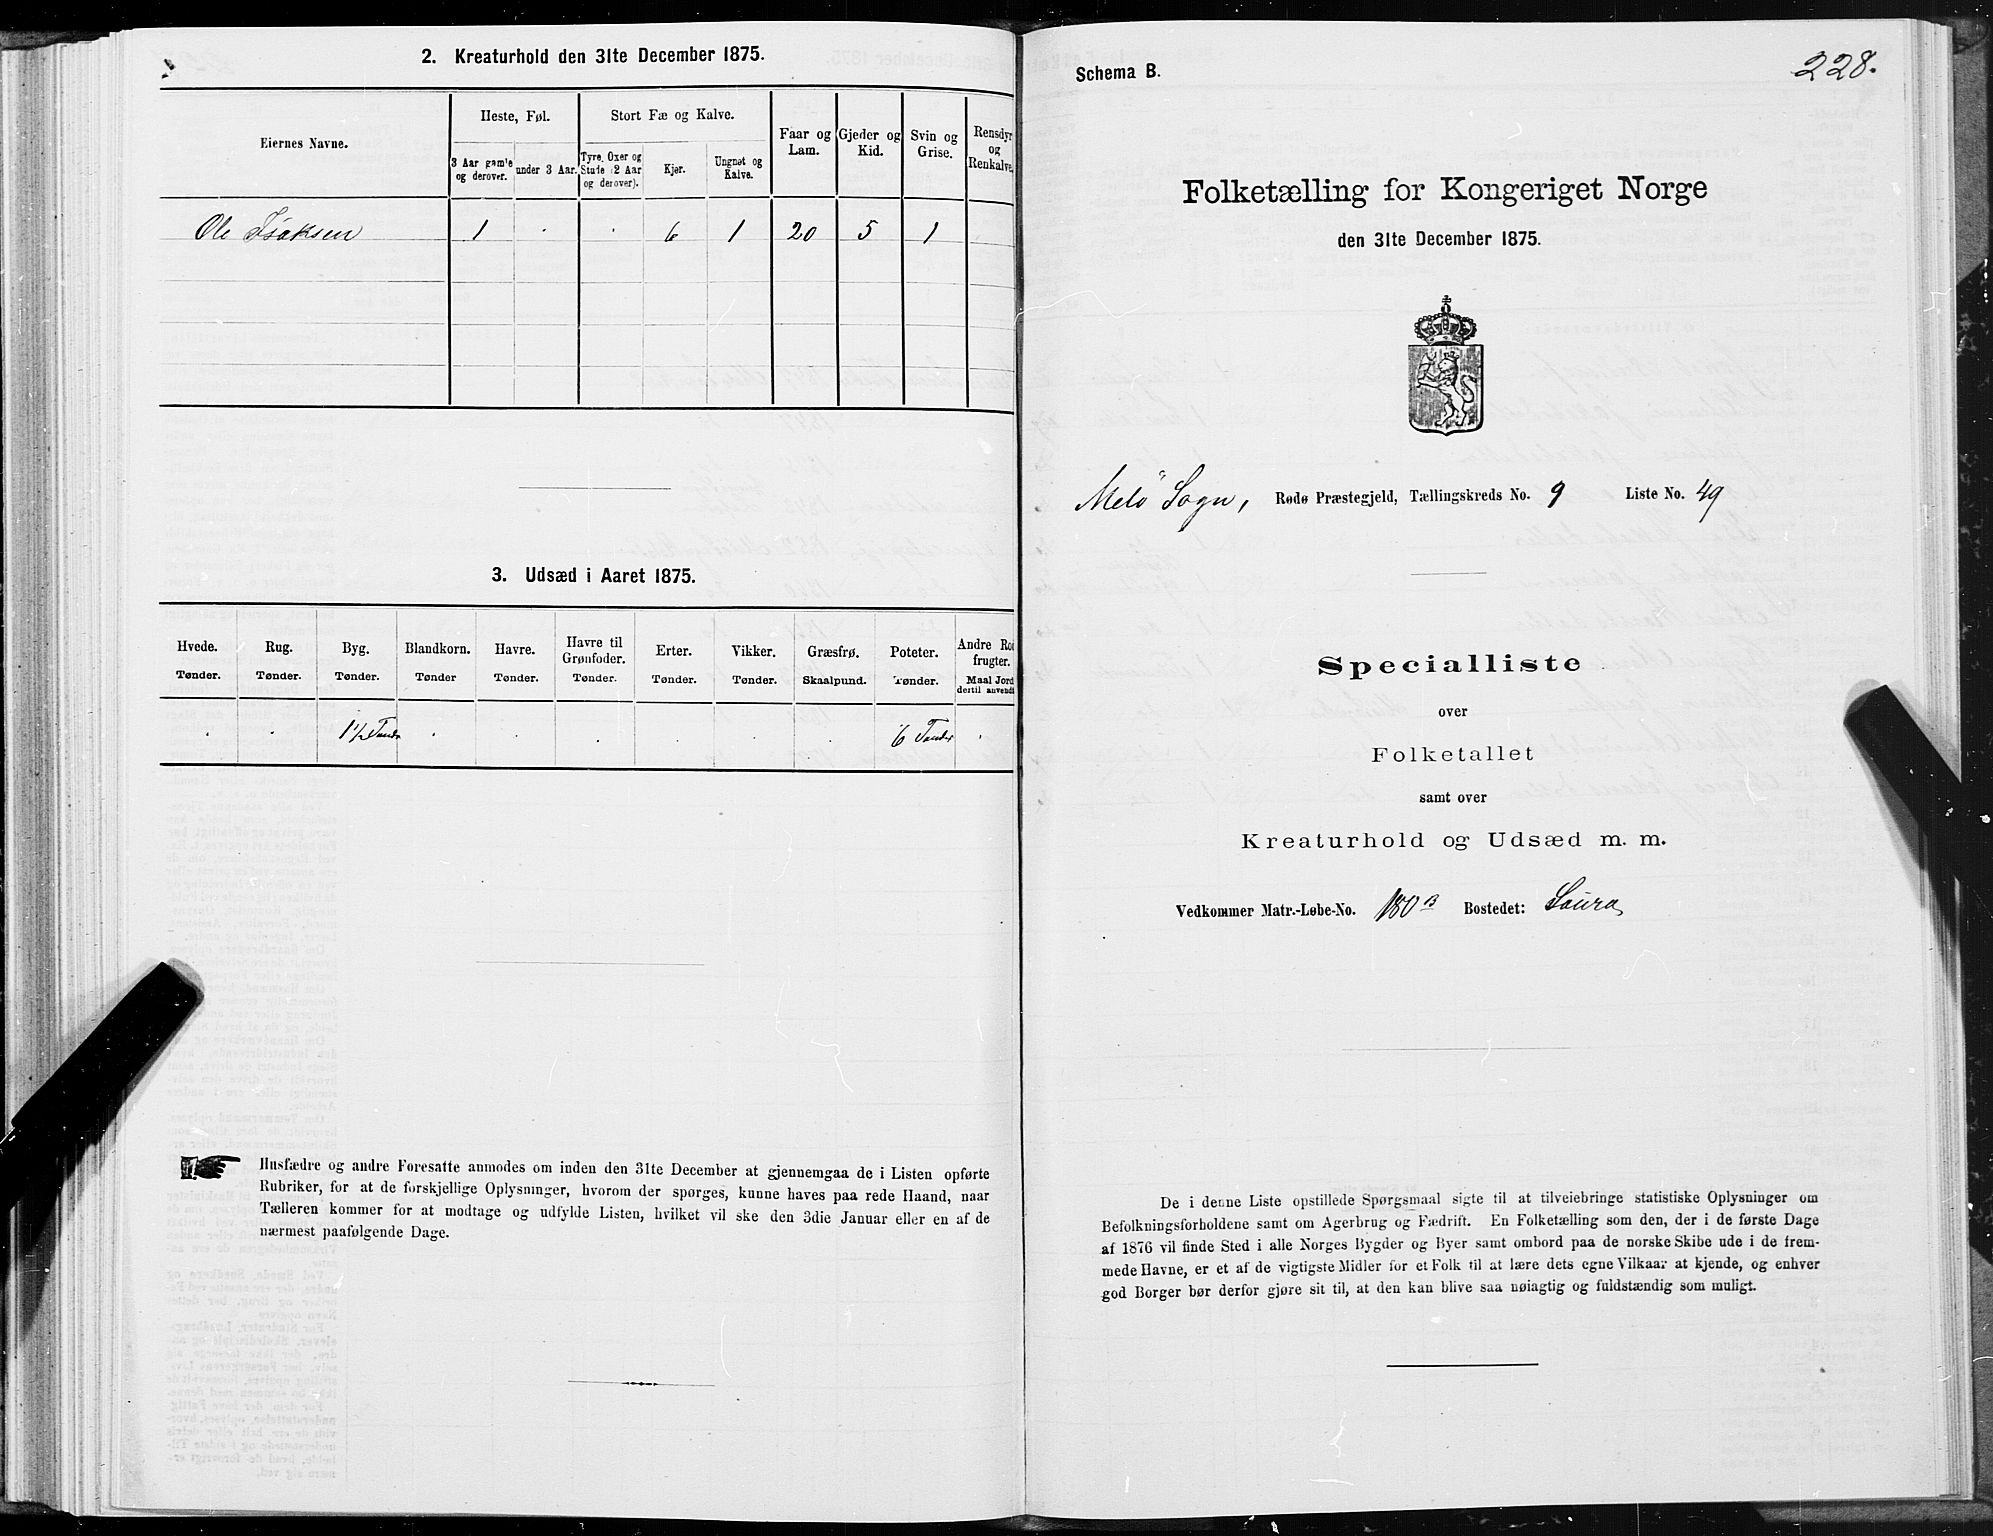 2. Kreaturhold den 31te December 1875.
Eiernes Navne.
Heste, Føl.
Stort Fæ og Kalve.
Faar og Lam.
Gjeder og Kid.
Svin og Grise.
Rensdyr og Renkalve.
3 Aar gamle og derover.
under 3 Aar.
Tyre, Oxer og Stude (2 Aar og derover).
Kjør.
Ungnøt og Kalve.
Ole Isaksen 1 . . 6 1 20 5 1
3. Udsæd i Aaret 1875.
Hvede. Rug. Byg. Blandkorn. Havre. Havre til Grønfoder. Erter. Vikker. Græsfrø. Poteter. Andre Rodfrugter.
Tønder. Tønder. Tønder. Tønder Tønder. Tønder. Tønder. Tønder. Skaalpund. Tønder. Maal Jord dertil anvendt
. . 1½ Tønde . . . . . . 6 Tønder .
Husfædre og andre Foresatte anmodes om inden den 31te December at gjennemgaa de i Listen opførte
Rubriker, for at de forskjellige Oplysninger, hvorom der spørges, kunne haves paa rede Haand, naar
Tælleren kommer for at modtage og udfylde Listen, hvilket vil ske den 3die Januar eller en af de
nærmest paafølgende Dage.
228.
Schema B.
Folketælling for Kongeriget Norge
den 31te December 1875.
Melö Sogn, Rødø Præstegjeld, Tællingskreds No. 9 Liste No. 49
Specialliste
over
Folketallet
samt over
Kreaturhold og Udsæd m. m.
Vedkommer Matr.-Løbe-No. 180 B Bostedet: Saura
De i denne Liste opstillede Spørgsmaal sigte til at tilveiebringe statistiske Oplysninger om
Befolkningsforholdene samt om Agerbrug og Fædrift. En Folketælling som den, der i de første Dage
af 1876 vil finde Sted i alle Norges Bygder og Byer samt ombord paa de norske Skibe ude i de frem-
mede Havne, er et af de vigtigste Midler for et Folk til at lære dets egne Vilkaar at kjende, og enhver
god Borger bør derfor gjøre sit til, at den kan blive saa nøiagtig og fuldstændig som muligt.